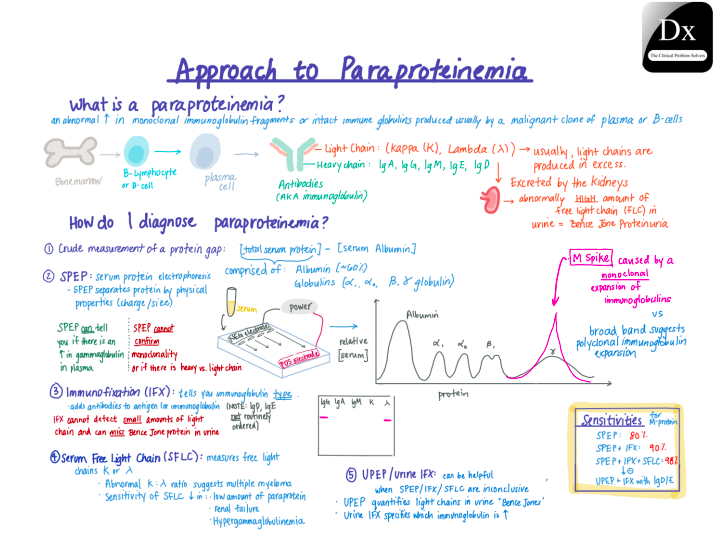 Dx
The Clinical Problem Solvers
Approach to Paraproteinemia
What is a paraproteinemia?
an abnormal ↑ in monoclonal immunoglobulin fragments or intact immune globulins produced usually by a malignant clone of plasma or B-cells
Bone marrow
B-Lymphocyte
or B-cell
plasma
cell
Antibodies
(AKA immunoglobulin)
Light Chain: (Kappa (K), Lambda (λ)) → usually, light chains are
produced in excess.
Heavy chain: IgA, IgG, IgM, IgE, IgD
Excreted by the kidneys
→ abnormally HIGH amount of
free light chain (FLC) in
urine = Bence Jone Proteinuria
How do I diagnose paraproteinemia?
① Crude measurement of a protein gap: [total serum protein] - [serum Albumin]
comprised of: Albumin (~60%)
Globulins (α₁, α₂, β, γ globulin)
② SPEP: serum protein electrophoresis
- SPEP separates protein by physical
properties (charge/size)
SPEP can tell
you if there is an
↑ in gammaglobulin
in plasma
SPEP cannot
confirm
monoclonality
or if there is heavy vs. light chain
serum
power
NEG electrode
POS electrode
relative
[serum]
Albumin
α₁
α₂
β₁
γ
protein
M Spike caused by a
monoclonal
expansion of
immunoglobulins
vs
broad band suggests
polyclonal immunoglobulin
expansion
③ Immunofixation (IFX): tells you immunoglobulin type.
- adds antibodies to antigen (or immunoglobulin
(NOTE: IgD, IgE
not routinely
ordered)
IFX cannot detect small amounts of light
chain and can miss Bence Jone protein in urine
IgG IgA IgM K λ
④ Serum Free Light Chain (SFLC): measures free light
chains K or λ
· Abnormal K:λ ratio suggests multiple myeloma
· Sensitivity of SFLC ↓ in: · low amount of paraprotein
· renal failure
· Hypergammaglobulinemia
⑤ UPEP/urine IFX: can be helpful
when SPEP/IFX/SFLC are inconclusive
· UPEP quantifies light chains in urine "Bence Jones"
· Urine IFX specifies which immunoglobulin is ↑
Sensitivities for
M-protein
SPEP: 80%
SPEP + IFX: 90%
SPEP + IFX + SFLC: 98%
↓⊖
UPEP + IFX with IgD/E